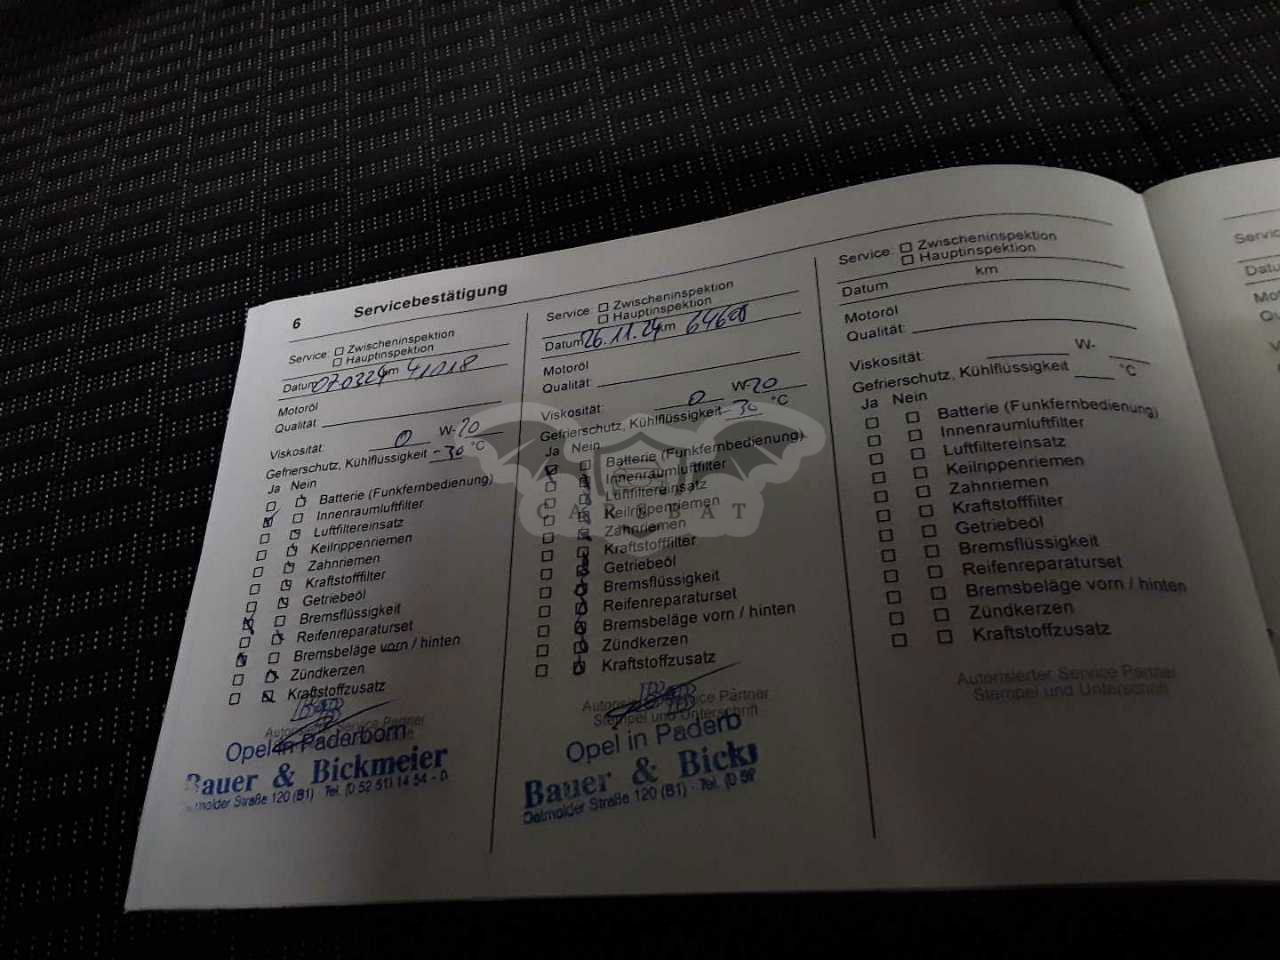 6 Servicebestätigung
Service: Zwischeninspektion
Hauptinspektion
Datum 07.03.24 km 41018
Motoröl
Qualität:
Viskosität: 0 W-20
Gefrierschutz, Kühlflüssigkeit -30 °C
Ja Nein
Batterie (Funkfernbedienung)
Innenraumluftfilter
Luftfiltereinsatz
Keilrippenriemen
Zahnriemen
Kraftstofffilter
Getriebeöl
Bremsflüssigkeit
Reifenreparaturset
Bremsbeläge vorn / hinten
Zündkerzen
Kraftstoffzusatz
Autorisierter Service Partner
Opel in Paderborn
Bauer & Bickmeier
Straße 120 (B1) · Tel. (0 52 51) 14 54 - 0
Service: Zwischeninspektion
Hauptinspektion
Datum 26.11.24 km
Motoröl
Qualität:
Viskosität: 0 W-20
Gefrierschutz, Kühlflüssigkeit -30 °C
Ja Nein
Batterie (Funkfernbedienung)
Innenraumluftfilter
Luftfiltereinsatz
Keilrippenriemen
Zahnriemen
Kraftstofffilter
Getriebeöl
Bremsflüssigkeit
Reifenreparaturset
Bremsbeläge vorn / hinten
Zündkerzen
Kraftstoffzusatz
Service Partner
Stempel und Unterschrift
Opel in Paderb
Bauer & Bick
Detmolder Straße 120 (B1) · Tel. (0 5
Service: Zwischeninspektion
Hauptinspektion
Datum km
Motoröl
Qualität:
Viskosität: W-
Gefrierschutz, Kühlflüssigkeit °C
Ja Nein
Batterie (Funkfernbedienung)
Innenraumluftfilter
Luftfiltereinsatz
Keilrippenriemen
Zahnriemen
Kraftstofffilter
Getriebeöl
Bremsflüssigkeit
Reifenreparaturset
Bremsbeläge vorn / hinten
Zündkerzen
Kraftstoffzusatz
Autorisierter Service Partner
Stempel und Unterschrift
Servic
Datu
Mo
Qu
CARBAT